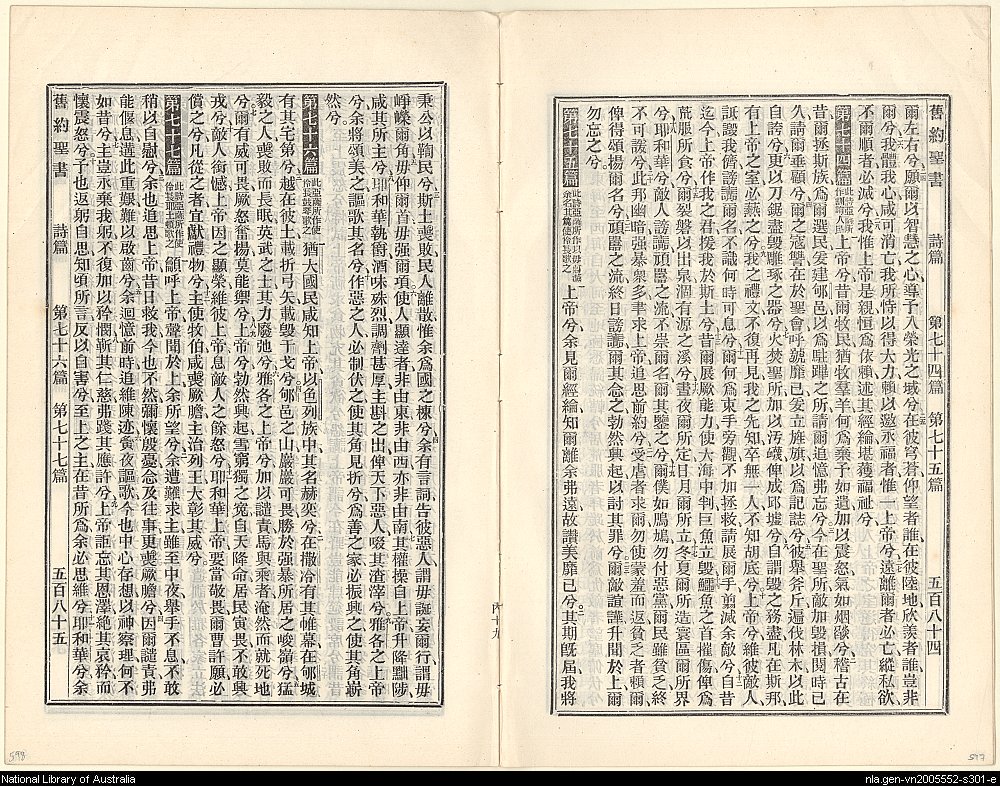 舊約聖書 詩篇 第七十四篇 第七十五篇 五百八十四
爾左右兮、願爾以智慧之心導予入榮光之域兮、在彼穹蒼仰望者誰、在彼陸地欣羨者誰、豈非
爾兮、我體我心咸可消亡、我所恃以得大力、賴以邀永福者、惟一上帝兮、遠離爾者必亡、縱私欲
不爾順者必滅兮、我惟上帝是親、恒爲依賴、述其經綸、堪蒙福祉兮、
第七十四篇 上帝兮、昔爾牧民、猶牧羣羊、何爲棄予如遺、加以震怒、氣如烟燄兮、稽古在
昔、爾拯斯族、爲爾選民、爰建郇邑、以爲駐蹕之所、請爾追憶弗忘兮、今在聖所、敵加毀損、閱時已
久、請爾垂顧兮、爾之寇讐、在於聖會、呼號靡已、爰立旌旗、以爲記誌兮、彼舉斧斤、遍伐林木、以此
自誇兮、更以刀鋸、盡毀雕琢之器兮、火焚聖所、加以污衊、俾成邱墟兮、自謂毀之務盡、凡在斯邦
有上帝之室、必爇之兮、我之禮文、不復再見、我之先知、卒無一人、不知胡底兮、上帝兮、維彼敵人
詆譭我儕、謗讟爾名、不識何時可息兮、爾何爲束手旁觀、不加拯救、請展爾手、翦滅余敵兮、自昔
迄今、上帝作我之君、援我於斯土兮、昔爾展厥能力、使大海中判、巨魚立毀、鱷魚之首摧傷、俾爲
荒服所食兮、爾裂磐以出泉、涸有源之溪兮、晝夜爾所定、日月爾所立、冬夏爾所造、寰區爾所界
兮、耶和華兮、敵人謗讟、頑嚚之流、不崇爾名、爾其鑒之兮、爾僕如鳲鳩、勿付惡黨、爾民雖貧、乏終
不可諼兮、此邦幽暗、強暴衆多、聿求上帝、追思前約兮、受虐者求爾、勿使蒙羞而返、貧乏者賴爾、
俾得頌揚爾名兮、頑嚚之流、終日謗讟、爾其念之、勃然興起、以討其罪兮、爾敵諠譁、升聞於上、爾
勿忘之兮、
第七十五篇 上帝兮、余見爾經綸、知爾離余弗遠、故讚美靡已兮、其期旣屆、我將
丙十九
舊約聖書 詩篇 第七十六篇 第七十七篇 五百八十五
秉公以鞫民兮、斯土喪敗、民人離散、惟余爲國之棟兮、余有言詞、告彼惡人、謂毋誕妄、爾行謂毋
崢嶸爾角、毋仰爾首、毋强爾項、使人顯達者、非由東、非由西、亦非由南、其權操自上帝、升降黜陟
咸其所主兮、耶和華執爵、酒味殊烈、調劑甚厚、主斟之出、俾天下惡人、啜其渣滓兮、雅各之上帝
兮、余將頌美之、謳歌其名兮、作惡之人、必制伏之、使其角見折兮、爲善之家、必振興之、使其角嶄
然兮、
第七十六篇 猶大國民、咸知上帝、以色列族中、其名赫奕兮、在撒冷有其帷幕、在郇城
有其宅第兮、越在彼土、載折弓矢、載毀干戈兮、郇邑之山、巖巖可畏、勝於强暴所居之峻嶺兮、猛
毅之人喪敗而長眠、英武之士、其力廢弛兮、雅各之上帝兮、加以譴責、馬與乘者、淹然而就死地
兮、爾有威可畏、厥怒奮揚、莫能禦兮、上帝兮、勃然興起、雪窮獨之寃、自天降命、居民寅畏、不敢興
戎兮、敵人銜憾、上帝因之顯榮、維彼上帝、息敵人之餘怒兮、耶和華上帝、要當敬畏、爾曹許願必
償之兮、凡從之者、宜獻禮物兮、主使牧伯、咸喪厥膽、主治列王、大彰其威兮、
第七十七篇 籲呼上帝、聲聞於上、余所望兮、余遭難求主、雖至中夜、舉手不息、不敢
稍以自慰兮、余也追思上帝、昔日救我、今也不然、彌懷殷憂、念及往事、更喪厥膽兮、因爾譴責、弗
能偃息、遘此重艱、難以啟齒兮、余迴憶前時、追維陳迹、夤夜謳歌、今也中心存想、以神察理、何不
如昔兮、主豈永棄我躬、不復加以矜憫、靳其仁慈、弗踐其應許兮、上帝詎忘其恩澤、絶其哀矜、而
懷震怒兮、予也返躬自思、知頃所言、反以自害兮、至上之主、在昔所爲、余必思維兮、耶和華兮、余